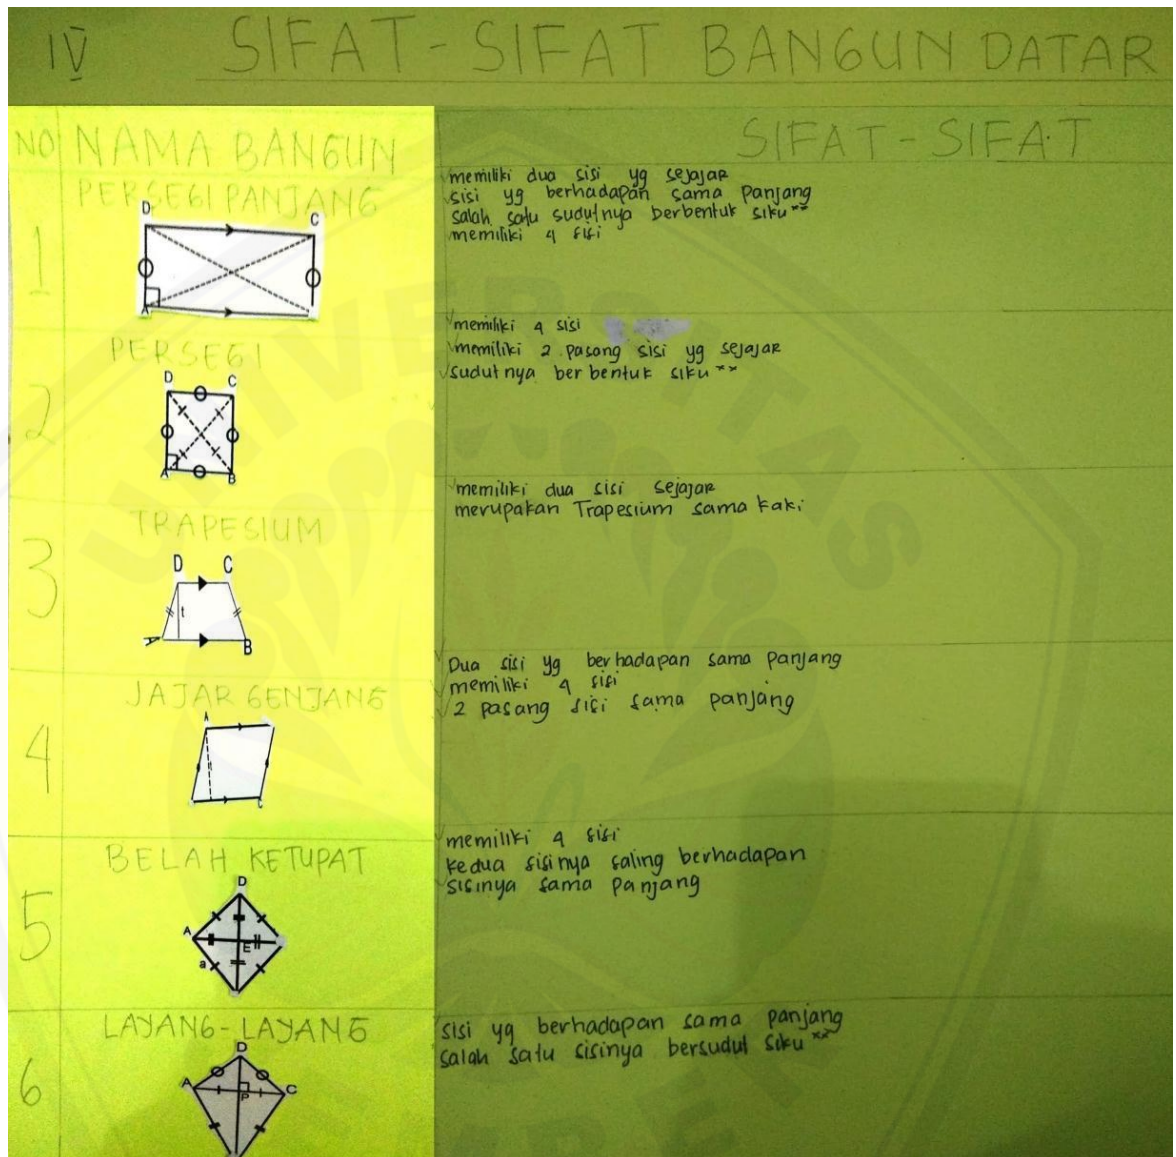 IV SIFAT-SIFAT BANGUN DATAR
NO NAMA BANGUN
SIFAT-SIFAT
1
PERSEGI PANJANG
D C
A
memiliki dua sisi yg sejajar
sisi yg berhadapan sama panjang
salah satu sudutnya berbentuk siku**
memiliki 4 sisi
2
PERSEGI
D C
A B
memiliki 4 sisi
memiliki 2 pasang sisi yg sejajar
sudutnya berbentuk siku**
3
TRAPESIUM
D C
t
A B
memiliki dua sisi sejajar
merupakan Trapesium sama kaki
4
JAJAR GENJANG
A
Dua sisi yg berhadapan sama panjang
memiliki 4 sisi
2 pasang sisi sama panjang
5
BELAH KETUPAT
D
A
E
a
memiliki 4 sisi
kedua sisinya saling berhadapan
sisinya sama panjang
6
LAYANG-LAYANG
D
A C
P
sisi yg berhadapan sama panjang
salah satu sisinya bersudut siku**
UNIVERSITAS